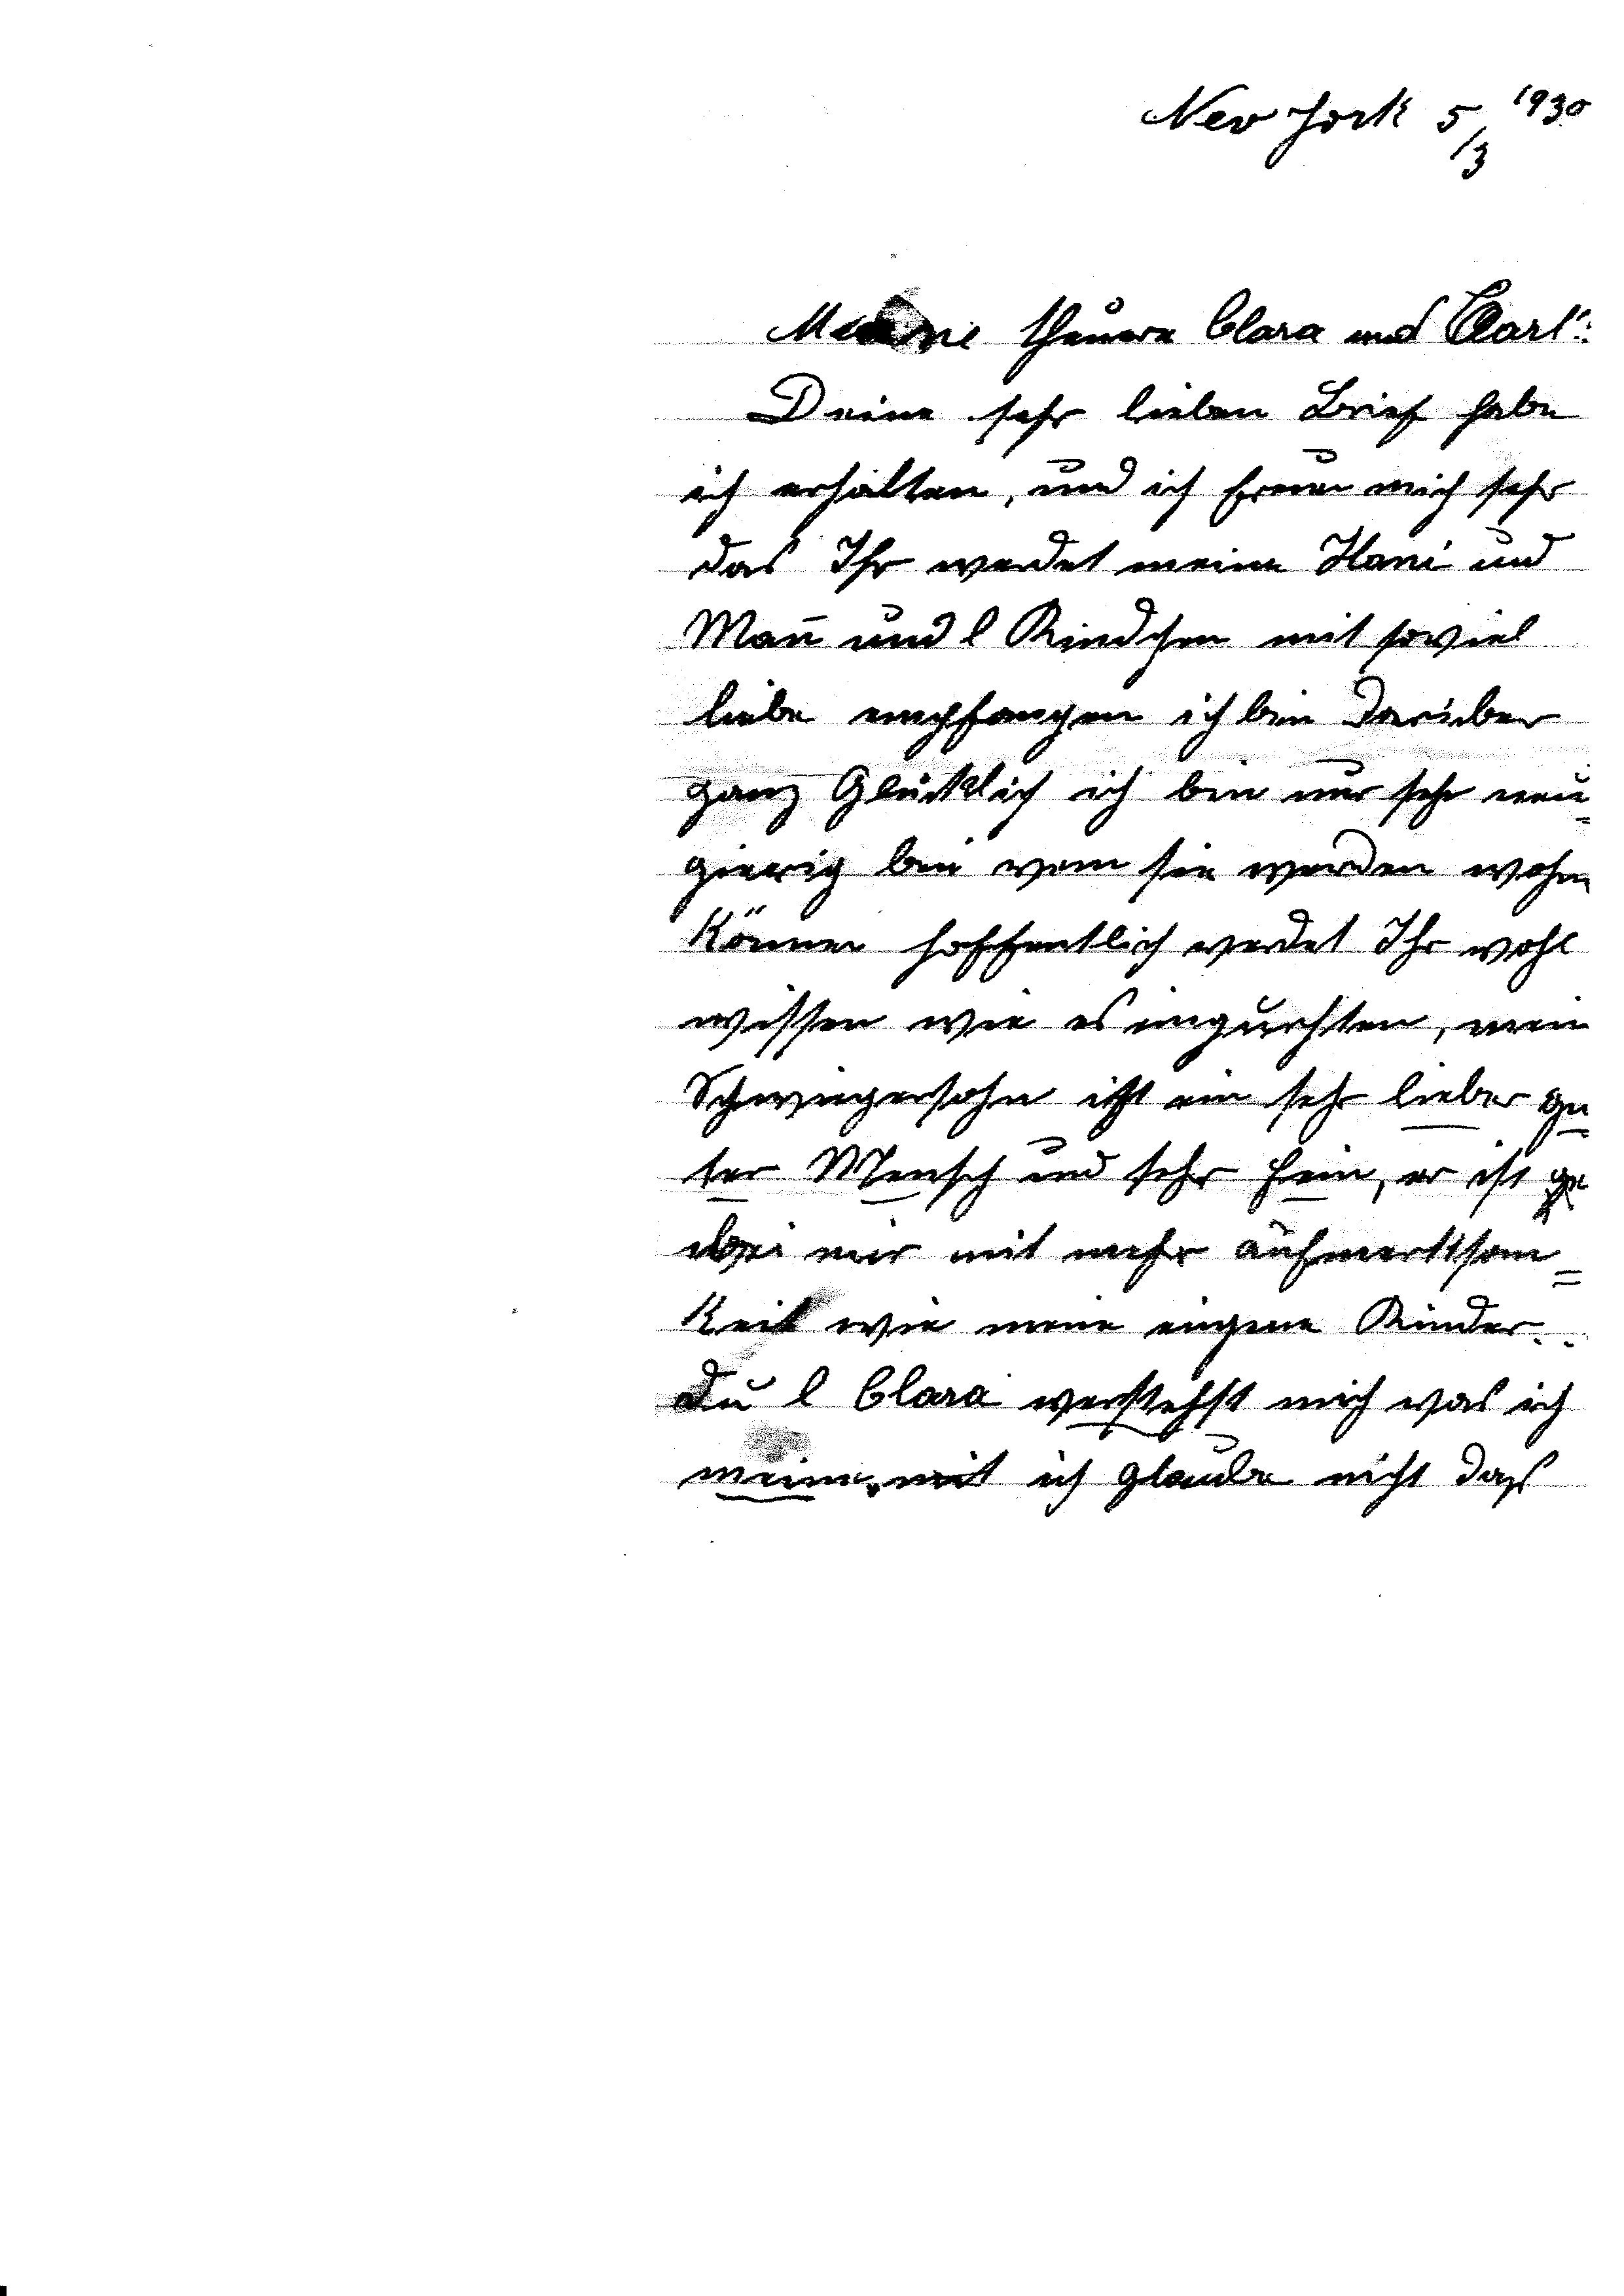 New York 5/3 1930
Meine theuere Clara und Carl:
Deine sehr lieben Brief habe
ich erhalten, und ich freue mich sehr
das Ihr werdet meine Hani und
Man̄ und l Kindchen mit soviel
liebe empfangen ich bin darüber
ganz Glücklich ich bin nur sehr neu=
gierig bei wem sie werden wohn
können hoffentlich werdet Ihr wohl
wissen wie es, mein
Schwiegersohn ist ein sehr lieber gu
ter Mensch und sehr fein, er ist
bei mir mit mehr aufmerksam=
keit wie meine eigene Kinder..
Du l Clara verstehst mich was ich
meine. mit ich glaube nicht dass